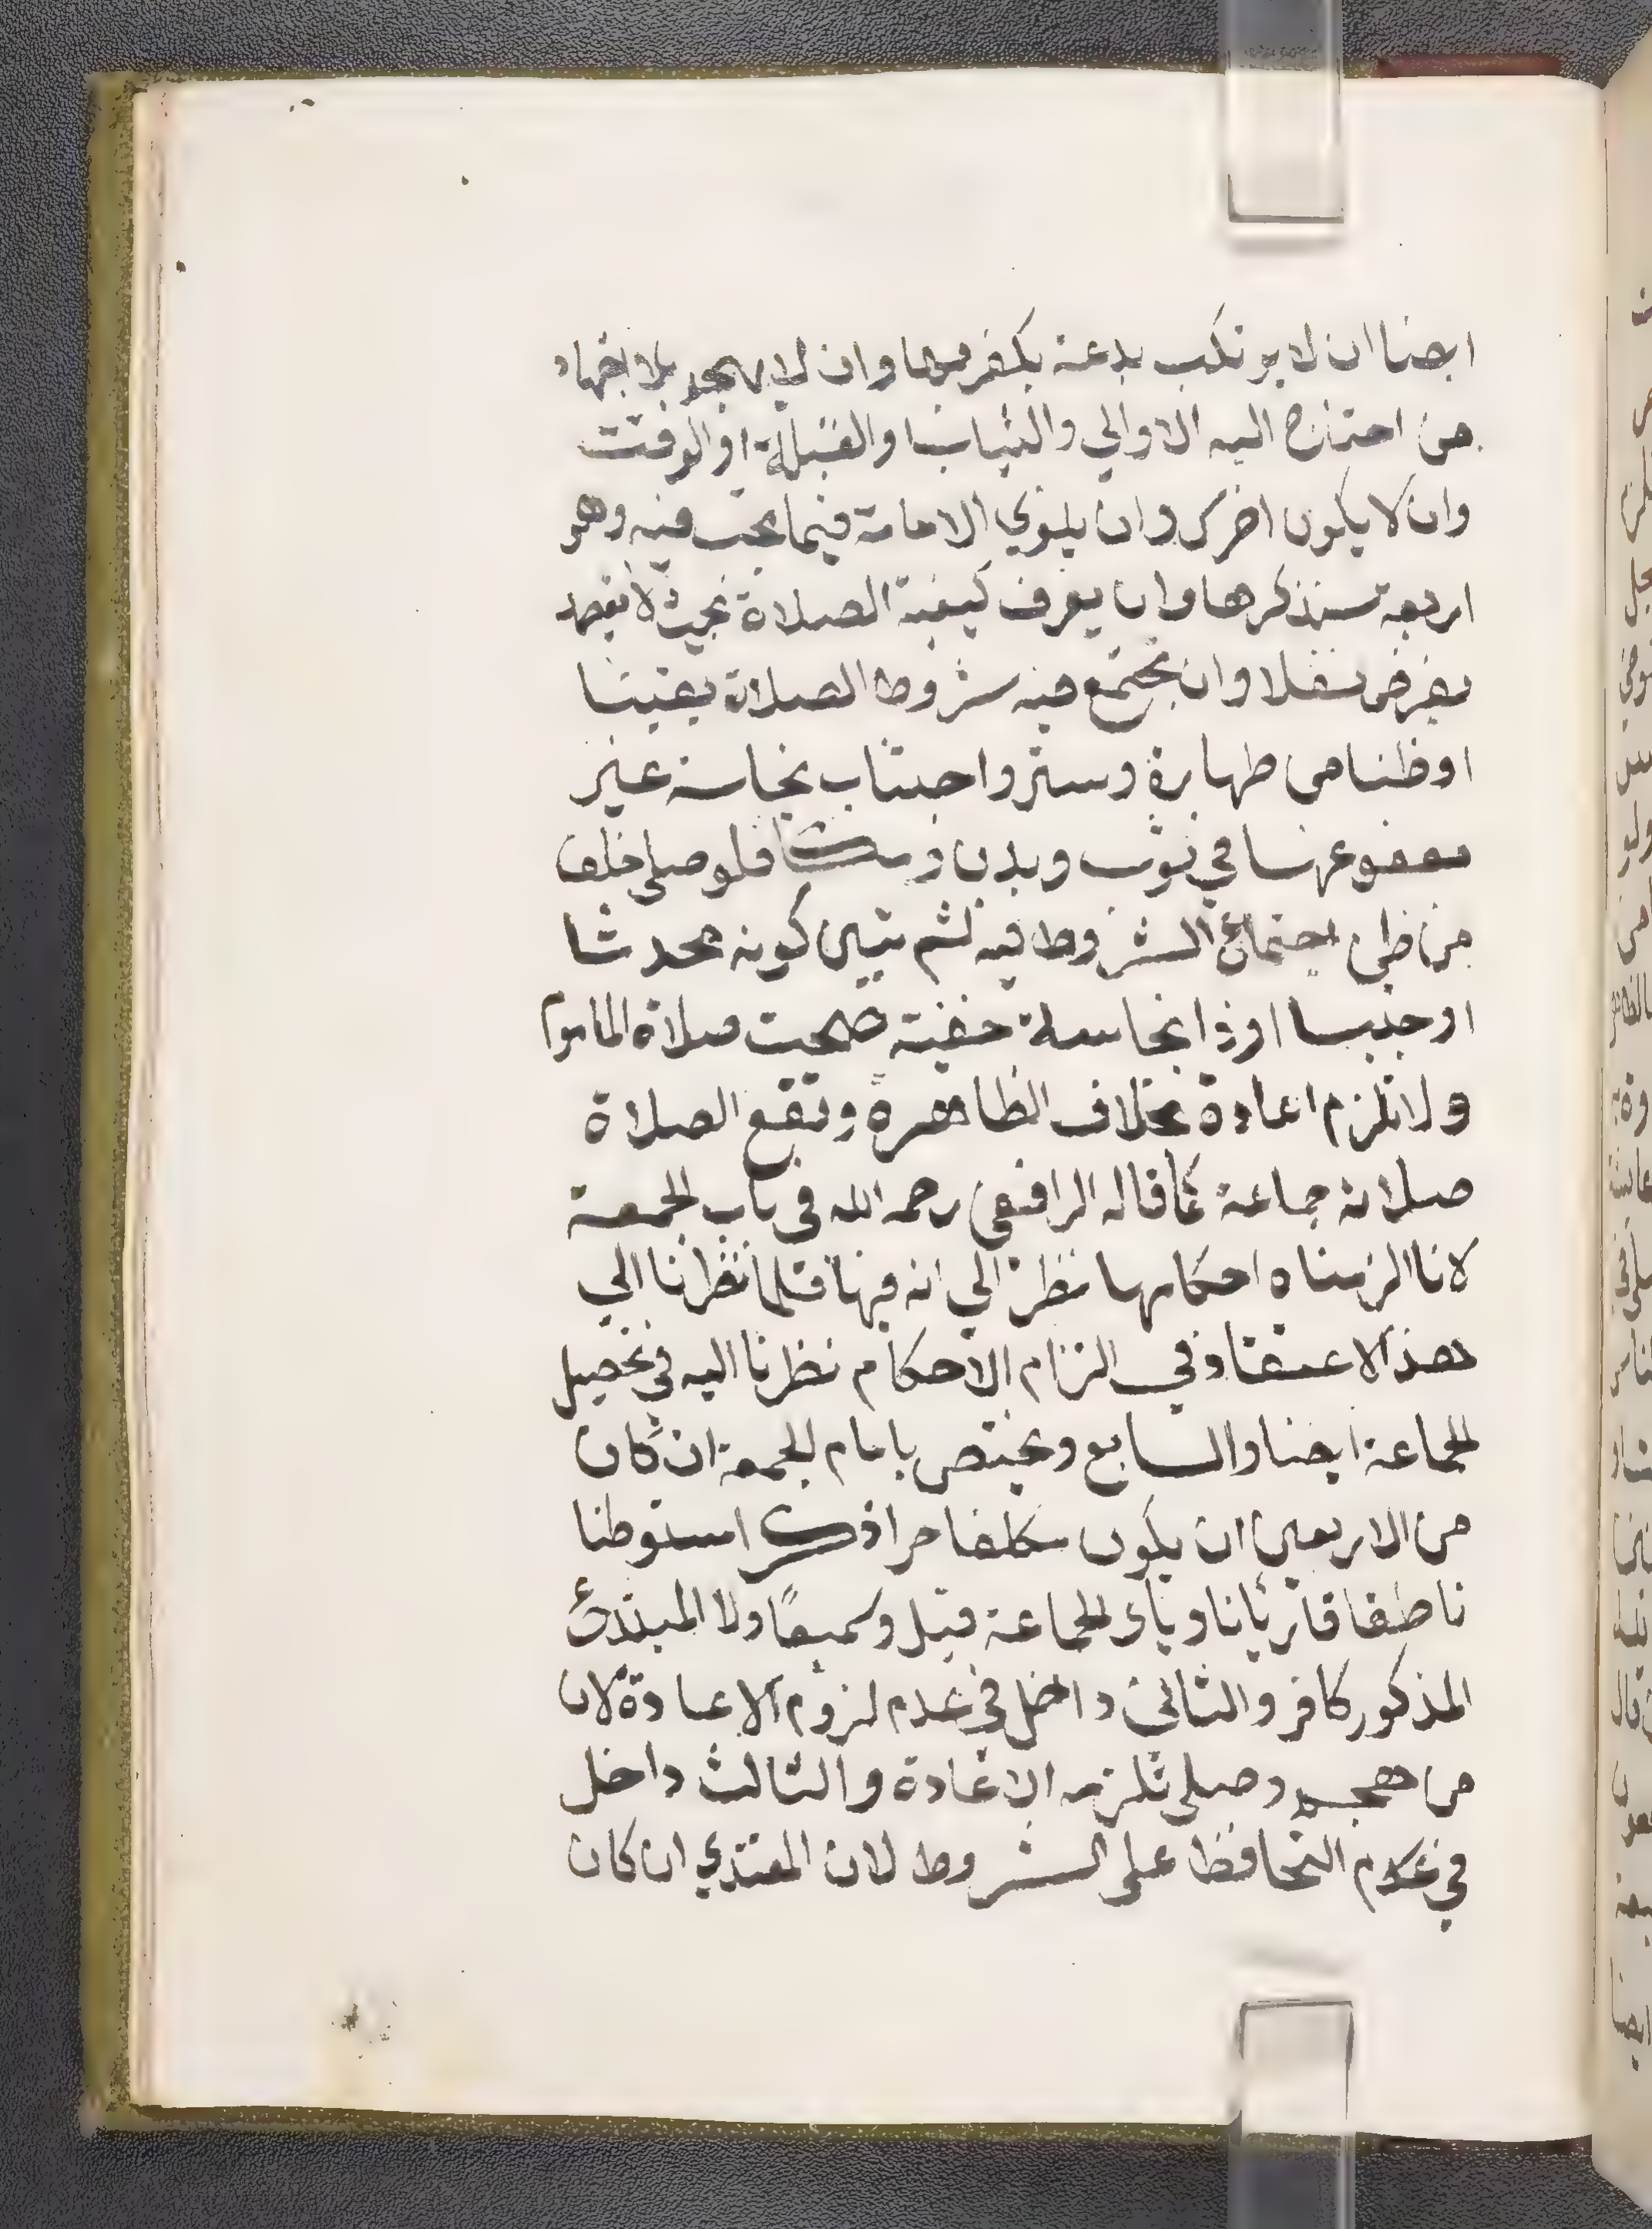 ايضا ان لا يرتكب بدعة يكفر بها وان لا يهجد بلا اجتهاد
من احتاج اليه الاواني والثياب والقبلة او الوقت
وان لا يكون اخرس وان ينوي الامامة فيما يجب فيه وهو
اربعة سنذكرها وان يعرف كيفية الصلاة بحيث لا يقصد
بفرض نفلا وان تجتمع فيه شروط الصلاة يقينا
او ظنا من طهارة وستر واجتناب نجاسة غير
معفو عنها في ثوب وبدن و فلو صلى خلف
من ظن اجتماع الشروط فيه ثم تبين كونه محدثا
او جنبا او ذا نجاسة خفية صحت صلاة الماموم
ولا تلزم اعادة بخلاف الظاهرة وتقع الصلاة
صلاة جماعة كما قاله الرافعي رحمه الله في باب الجمعة
لانا الزمناه احكامها نظرا الي انه فيها فلما نظرنا الي
هذا الاعتقاد في التزام الاحكام نظرنا اليه في تحصيل
الجماعة ايضا والسابع ويختص بامام الجمعة ان كان
من الاربعين ان يكون مكلفا حرا ذكرا مستوطنا
ناطقا قارئا ناويا الجماعة قيل وسميعا ولا المبتدئ
المذكور كافر والثاني داخل في عدم لزوم الاعادة لان
من هجد وصلى تلزمه الاعادة والثالث داخل
في عدم التحافظ على الشروط لان المقتدي ان كان